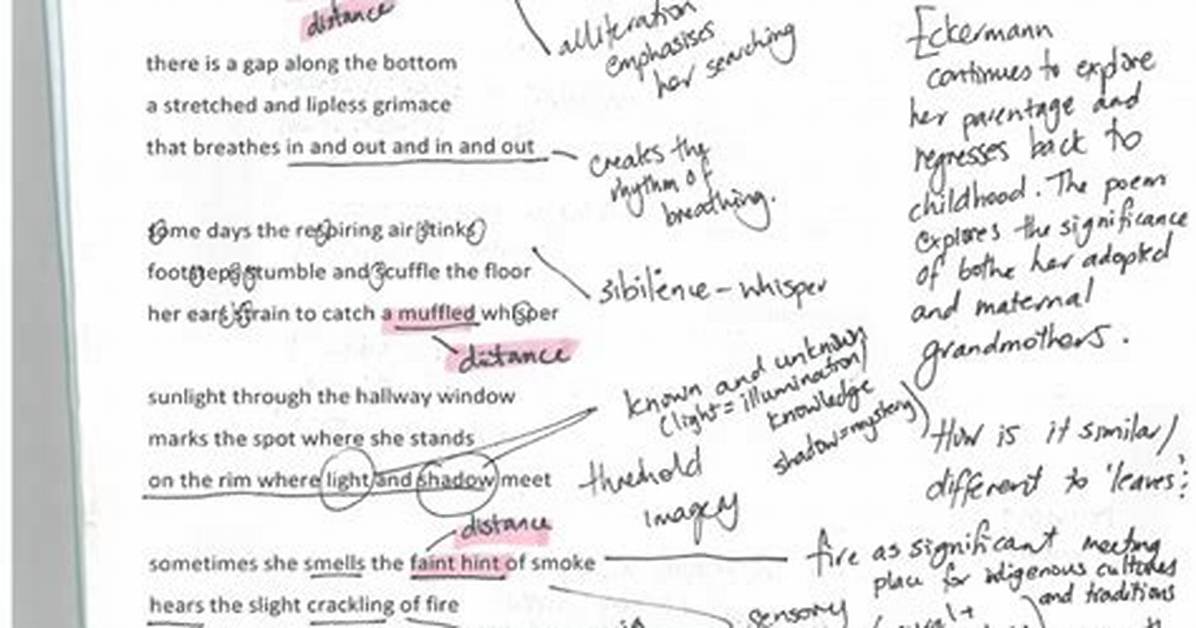 distance
alliteration
emphasises
her searching
there is a gap along the bottom
a stretched and lipless grimace
that breathes in and out and in and out
creates the
rhythm of
breathing.
some days the respiring air stinks
footsteps stumble and scuffle the floor
her ears strain to catch a muffled whisper
sibilence - whisper
distance
sunlight through the hallway window
marks the spot where she stands
on the rim where light and shadow meet
known and unknown
(light = illumination/
knowledge
shadow = mystery)
threhold
imagery
distance
sometimes she smells the faint hint of smoke
hears the slight crackling of fire
sensory
Eckermann
continues to explore
her parentage and
regresses back to
childhood. The poem
explores the significance
of bothe her adopted
and maternal
grandmothers.
How is it similar/
different to 'leaves'?
fire as significant meeting
place for indigenous cultures
and traditions